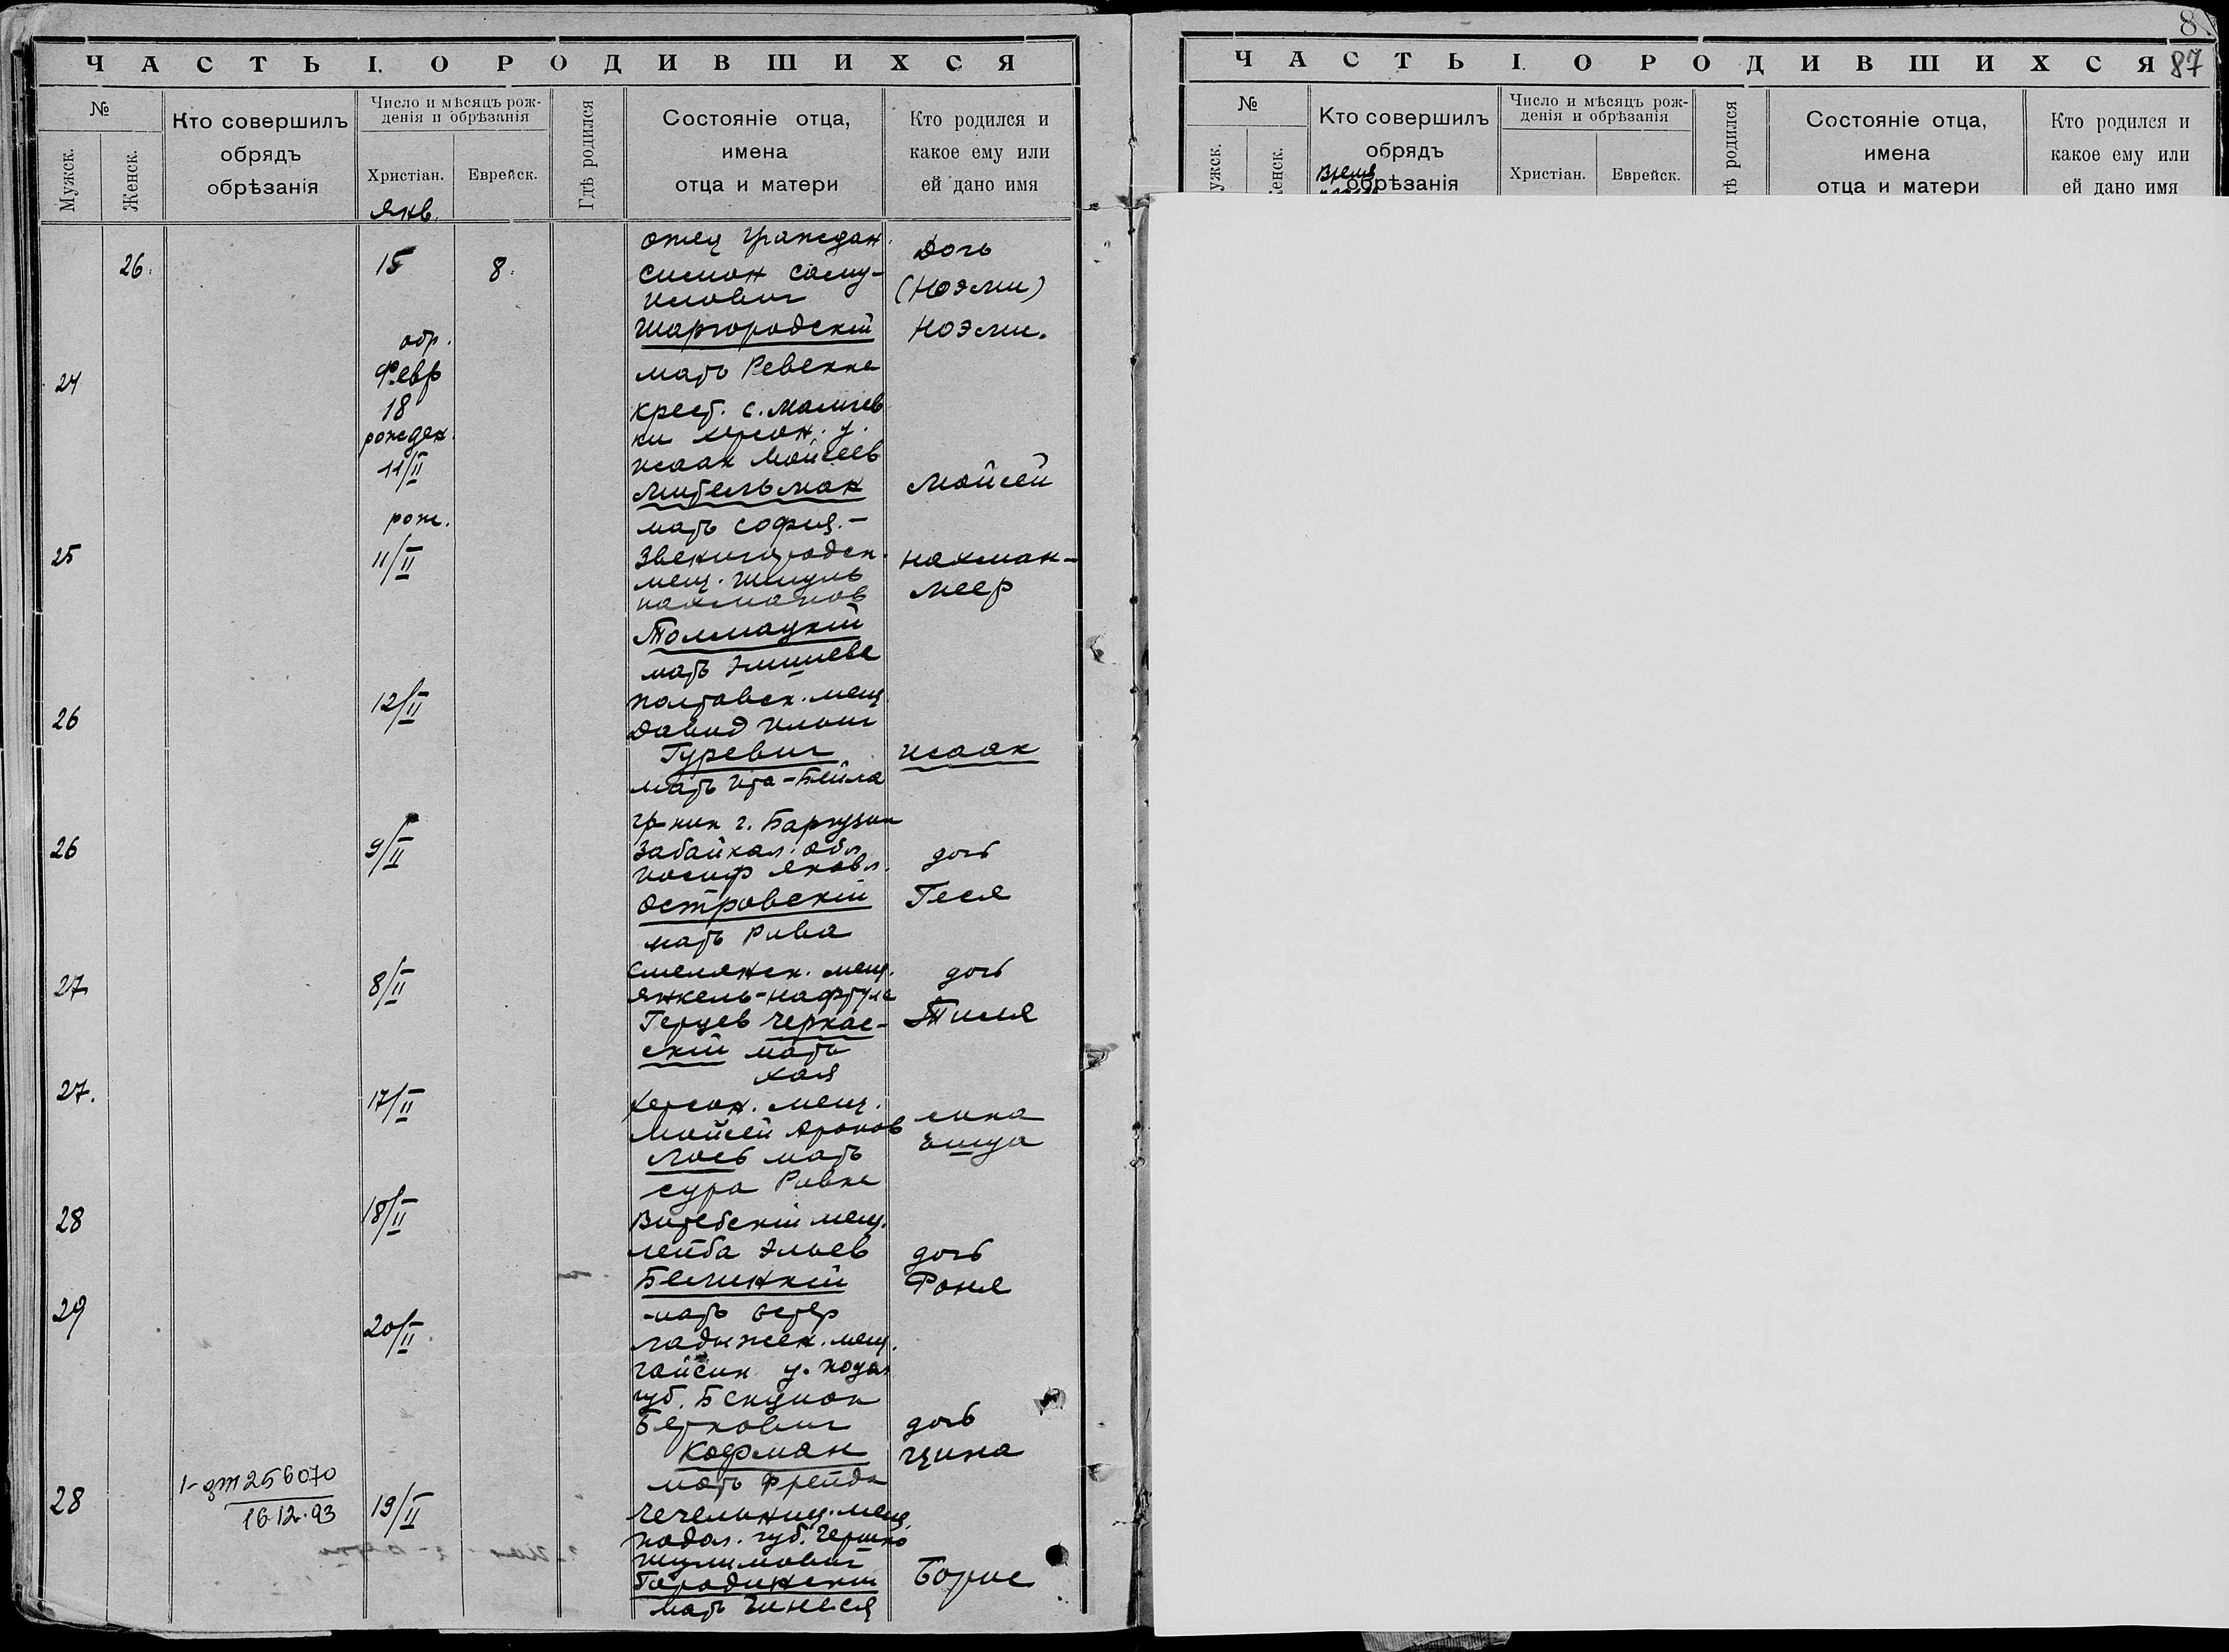 ЧАСТЬ I. О РОДИВШИХСЯ
№
Мужск.
Женск.
Кто совершилъ
обрядъ
обрѣзанія
Число и мѣсяцъ рож-
денія и обрѣзанія
Христіан.
Еврейск.
Гдѣ родился
Состояніе отца,
имена
отца и матери
Кто родился и
какое ему или
ей дано имя
Янв.
26.
15
8.
отец граждан.
Симон Саму-
илович
Шаргородскій
мать Ревекка
Дочь
(Ноэми)
Ноэми.
24
обр.
Февр
18
рожден.
11/II
крест. с.
ки херсон. у.
Исаак Мойсеев
Мительман
мать София.-
Мойсей
25
рож.
11/II
Звенигородск.
мещ. Шмуль
Нахманов
Толмацкій
мать
Нахман-
Меер
26
12/II
Полтавск. мещ
Давид Ильич
Гуревич
мать Ита-Бейла
Исаак
26
9/II
гр-нин г. Баргузин
Забайкал. обл
Иосиф Яковл.
Островскій
мать Рива
дочь
Геся
27
8/II
Смелянск. мещ.
Янкель-Нафтула
Герцев Черкас-
скій мать
Хая
дочь
27.
17/II
Херсон. мещ.
Мойсей Аронов
Лось мать
Сура Ривка
сина
28
18/II
Витебскій мещ.
Лейба Эльев
Белинкій
мать Естер
дочь
Фаня
29
20/II
Ладыжск. мещ.
Гайсин у. Подол
губ. Бенцион
Беркович
Кофман
мать Фрейда
дочь
Цина
28
1-дт 256070
16.12.93
19/II
Чечельниц. мещ.
Подол. губ. Гершко
Шулимович
Городинскій
мать
Борис
8
87
ЧАСТЬ I. О РОДИВШИХСЯ
№
ужск.
енск.
Кто совершилъ
обрядъ
обрѣзанія
Время
Число и мѣсяцъ рож-
денія и обрѣзанія
Христіан.
Еврейск.
дѣ родился
Состояніе отца,
имена
отца и матери
Кто родился и
какое ему или
ей дано имя